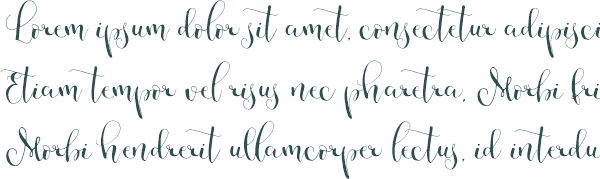 Lorem ipsum dolor sit amet, consectetur adipisci
Etiam tempor vel risus nec pharetra. Morbi fri
Morbi hendrerit ullamcorper lectus, id interdu